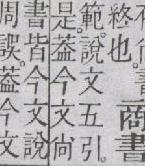 商書
終也。
範。說文五引。
是。葢今文尙
書皆今文說
周誤。葢今文